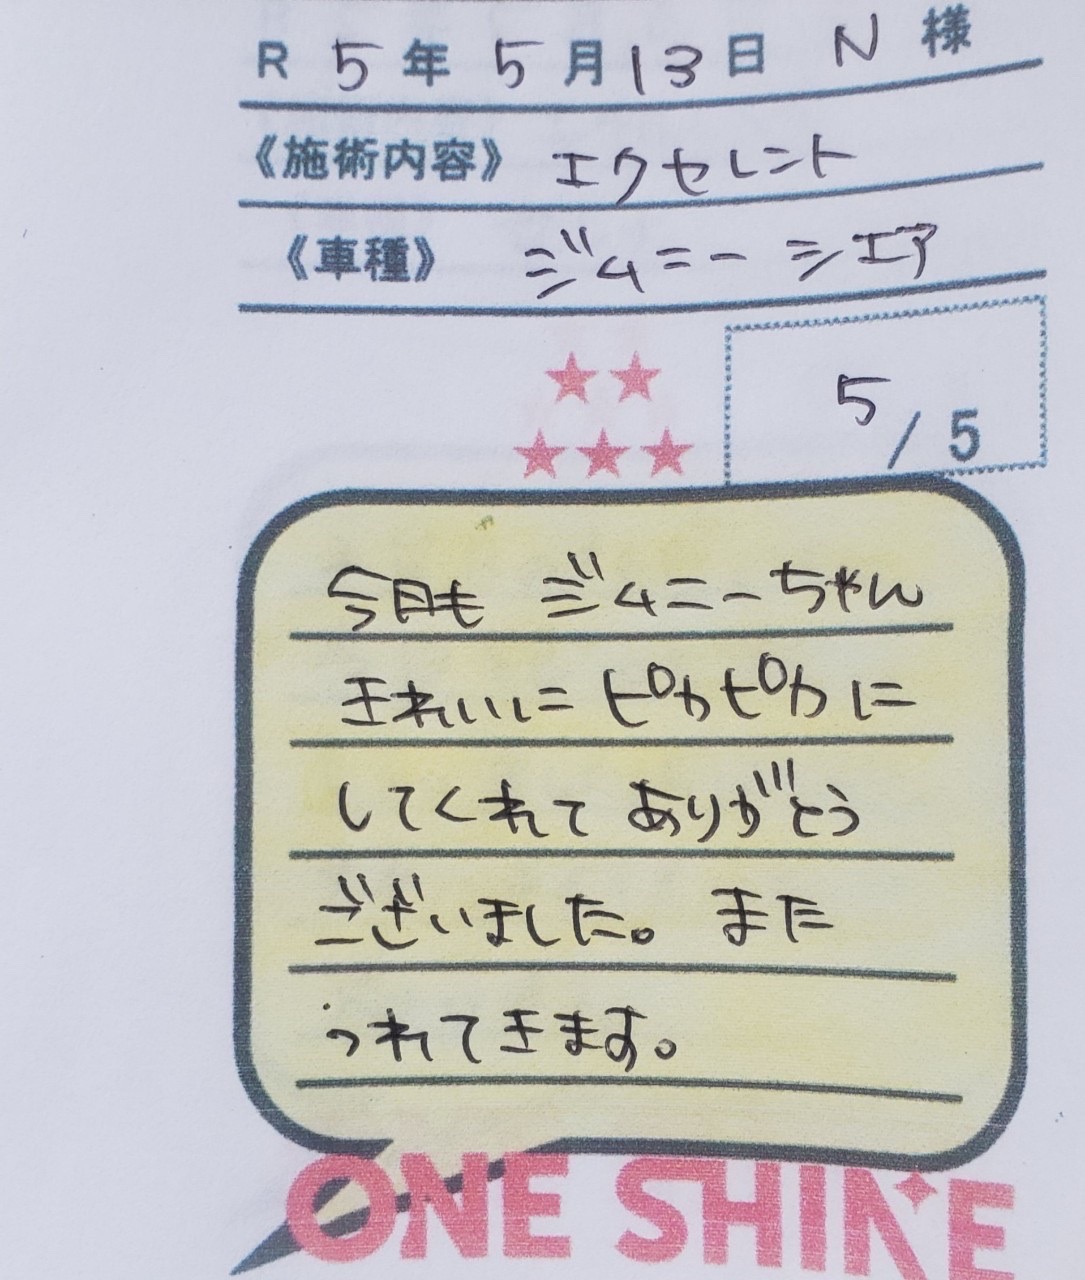 R 5年 5月13日 N 様
《施術内容》 エクセレント
《車種》 ジムニー シエア
5/5
今日も ジムニーちゃん
きれいに ピカピカに
してくれて ありがとう
ございました。 また
つれてきます。
ONE SHINE